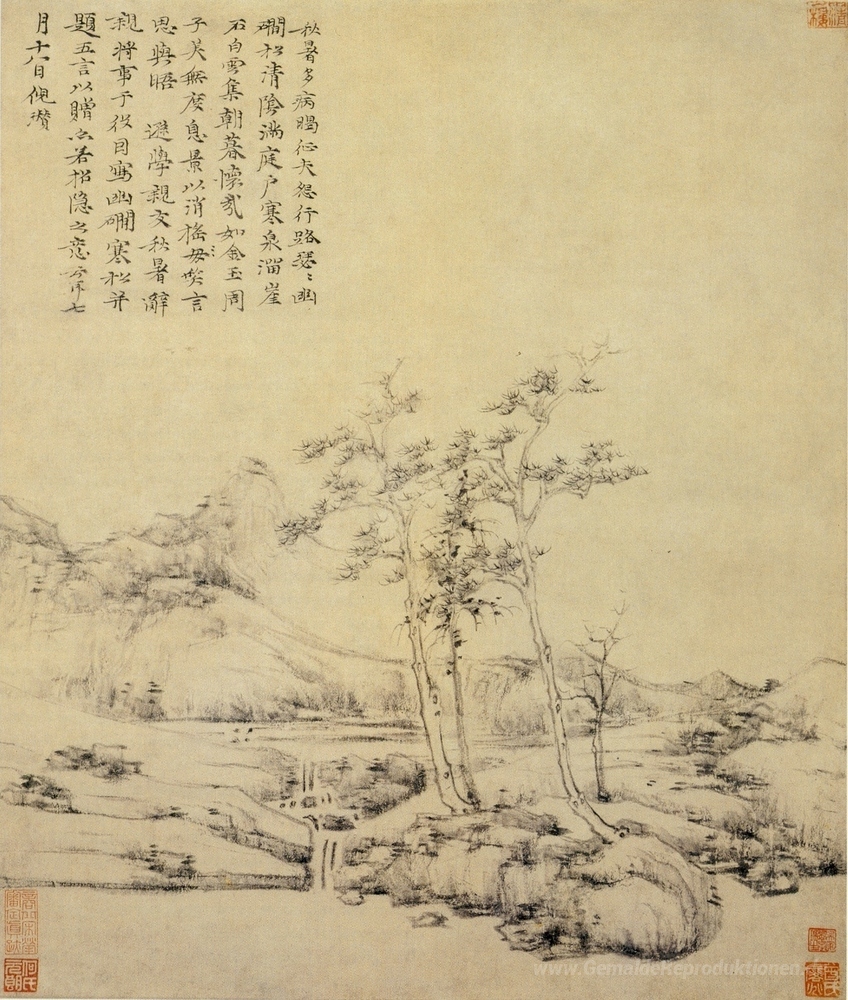 秋暑多病暍征夫怨行路瑟〻幽
澗松清陰滿庭戶寒泉溜崖
石白雲集朝暮懷哉如金玉周
子美無度息景以消搖毋笑言
思與晤 遜學親友秋暑辭
親將事于役因寫幽澗寒松并
題五言以贈亦若招隱之意云耳七
月十八日倪瓚
www.GemaldeReproduktionen.